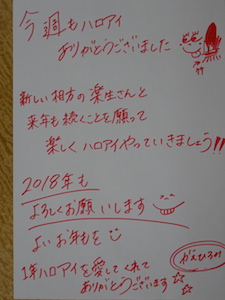 今週もハロアイ
ありがとうございました
新しい相方の楽生さんと
来年も続くことを願って
楽しくハロアイやっていきましょう!!
2018年も
よろしくお願いします
よいお年を
1年ハロアイを愛してくれて
ありがとうございます
がんひろの